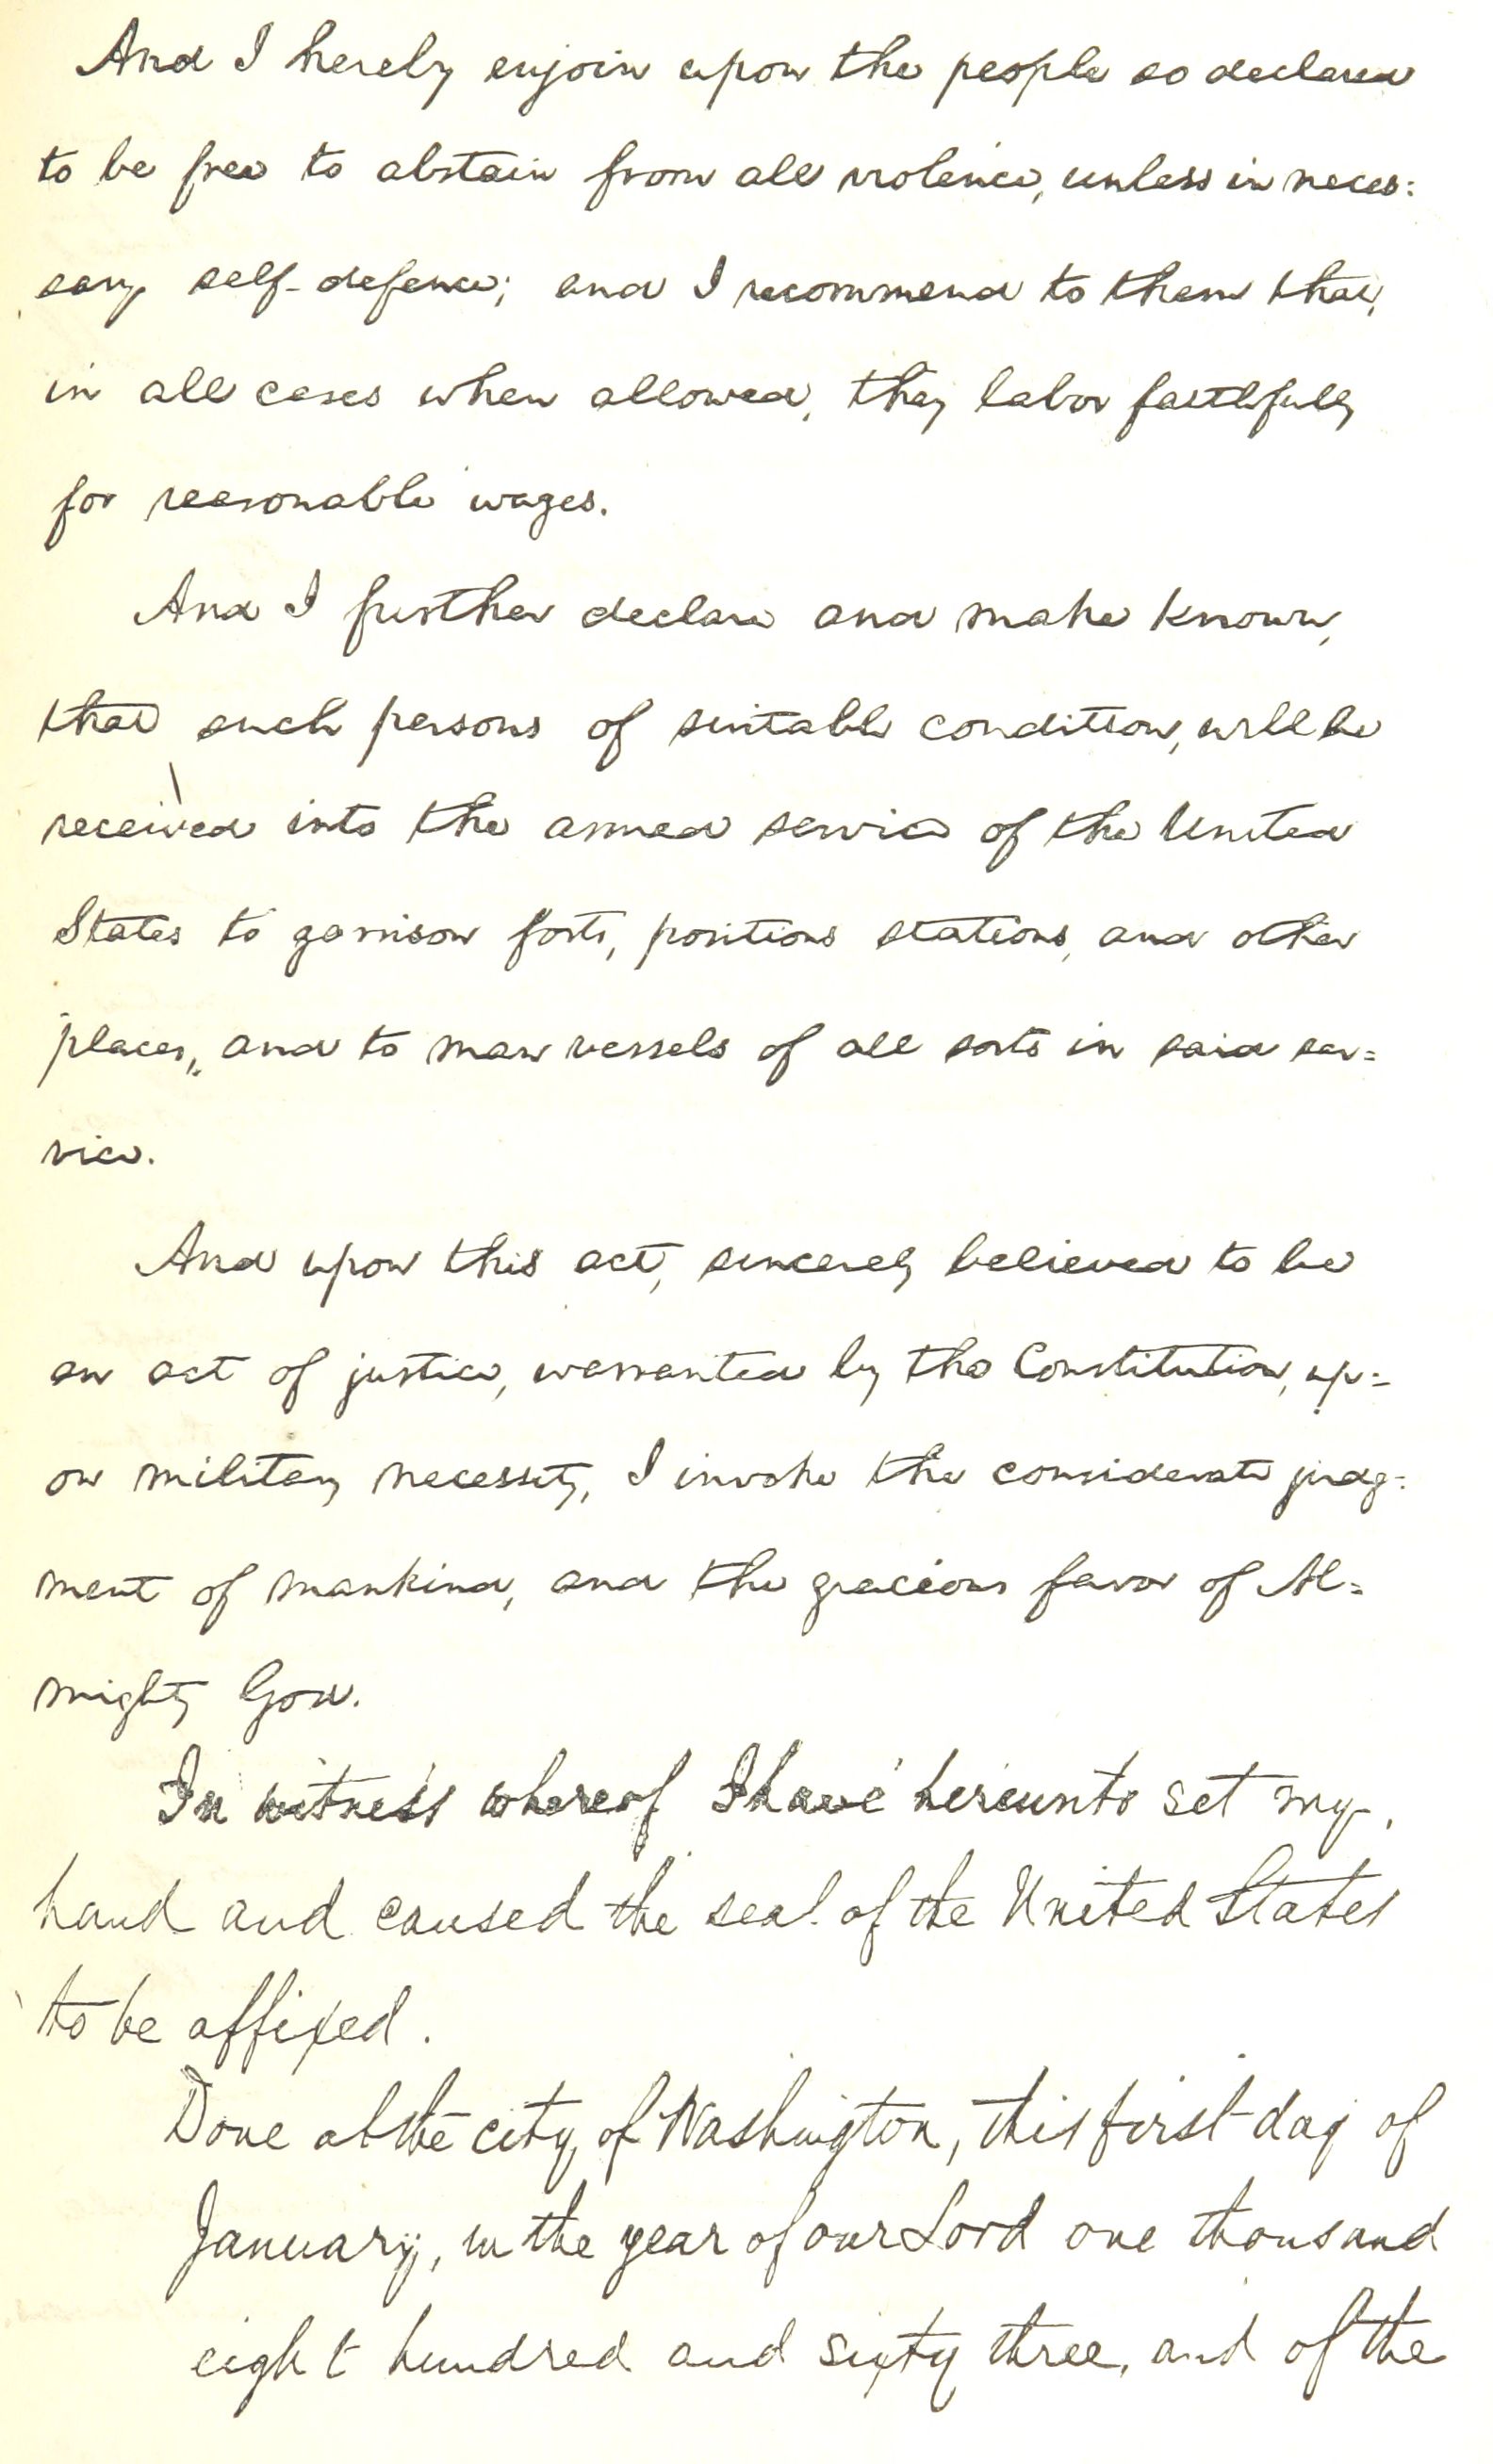 And I hereby enjoin upon the people so declared
to be free to abstain from all violence, unless in neces=
sary self-defence; and I recommend to them that,
in all cases when allowed, they labor faithfully
for reasonable wages.
And I further declare and make known,
that such persons of suitable condition, will be
received into the armed service of the United
States to garrison forts, positions stations, and other
places, and to man vessels of all sorts in said ser=
vice.
And upon this act, sincerely believed to be
an act of justice, warranted by the Constitution, up=
on military necessity, I invoke the considerate judg=
ment of mankind, and the gracious favor of Al=
mighty God.
In witness whereof I have hereunto set my
hand and caused the seal of the United States
to be affixed.
Done at the city of Washington, this first day of
January, in the year of our Lord one thousand
eight hundred and sixty three, and of the